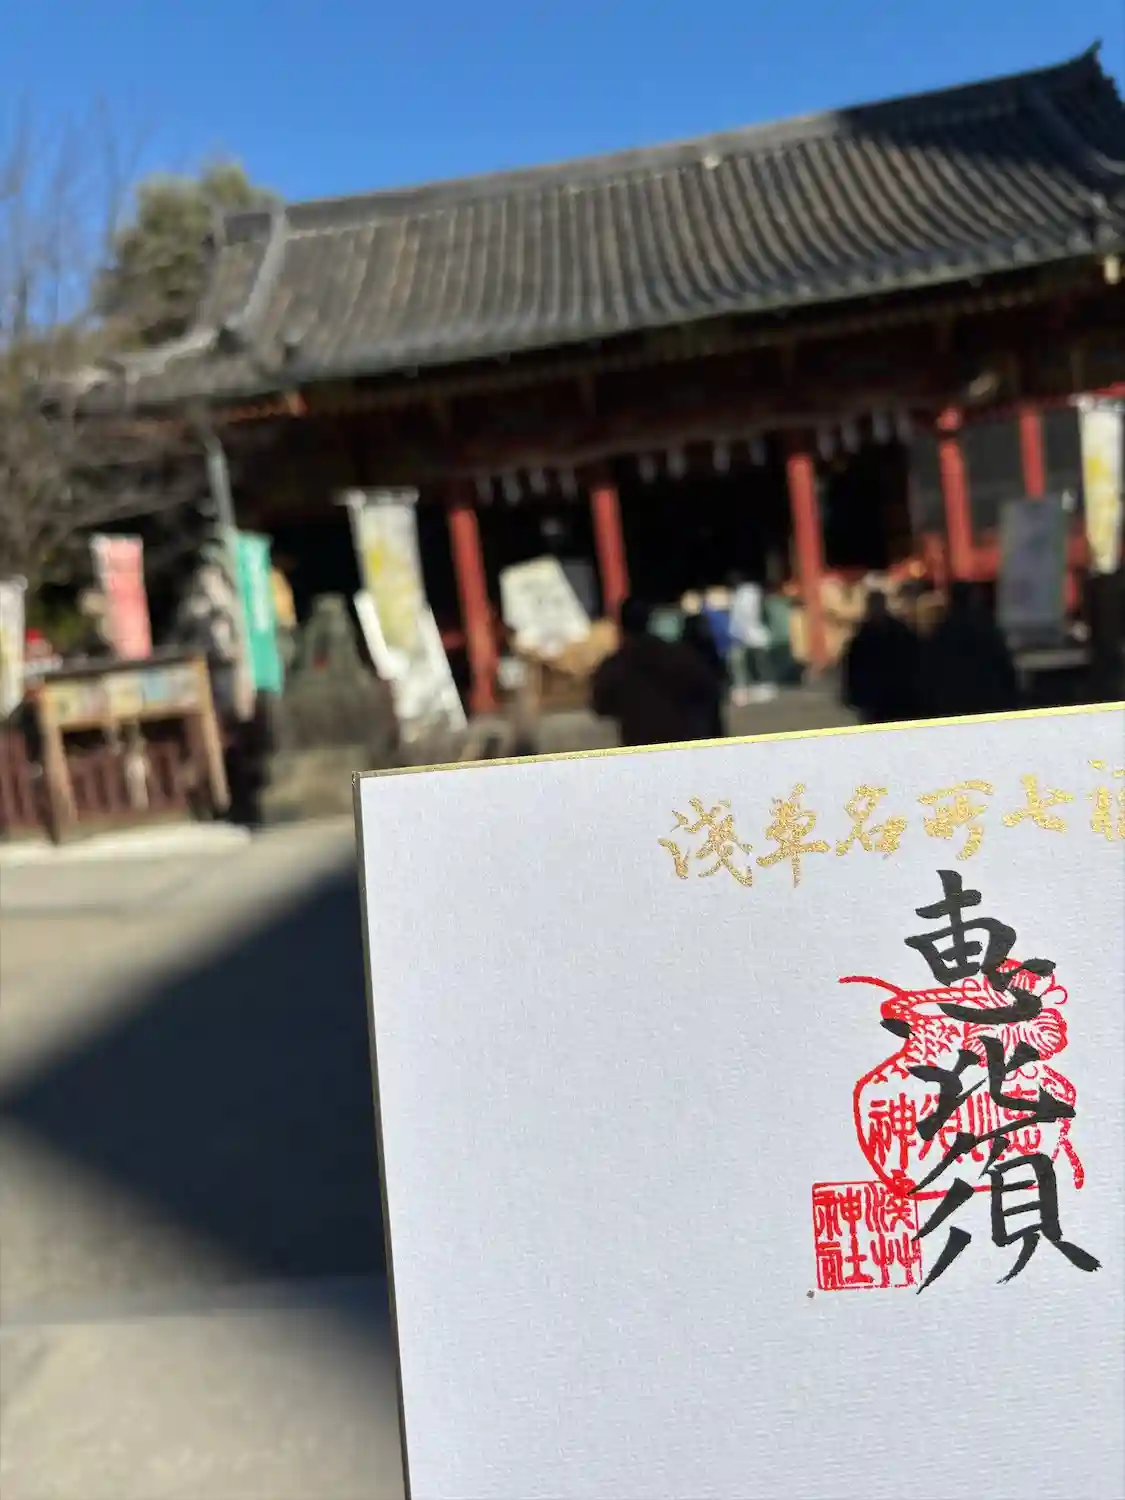 浅草名所七福
恵比須
恵比須神
浅草神社